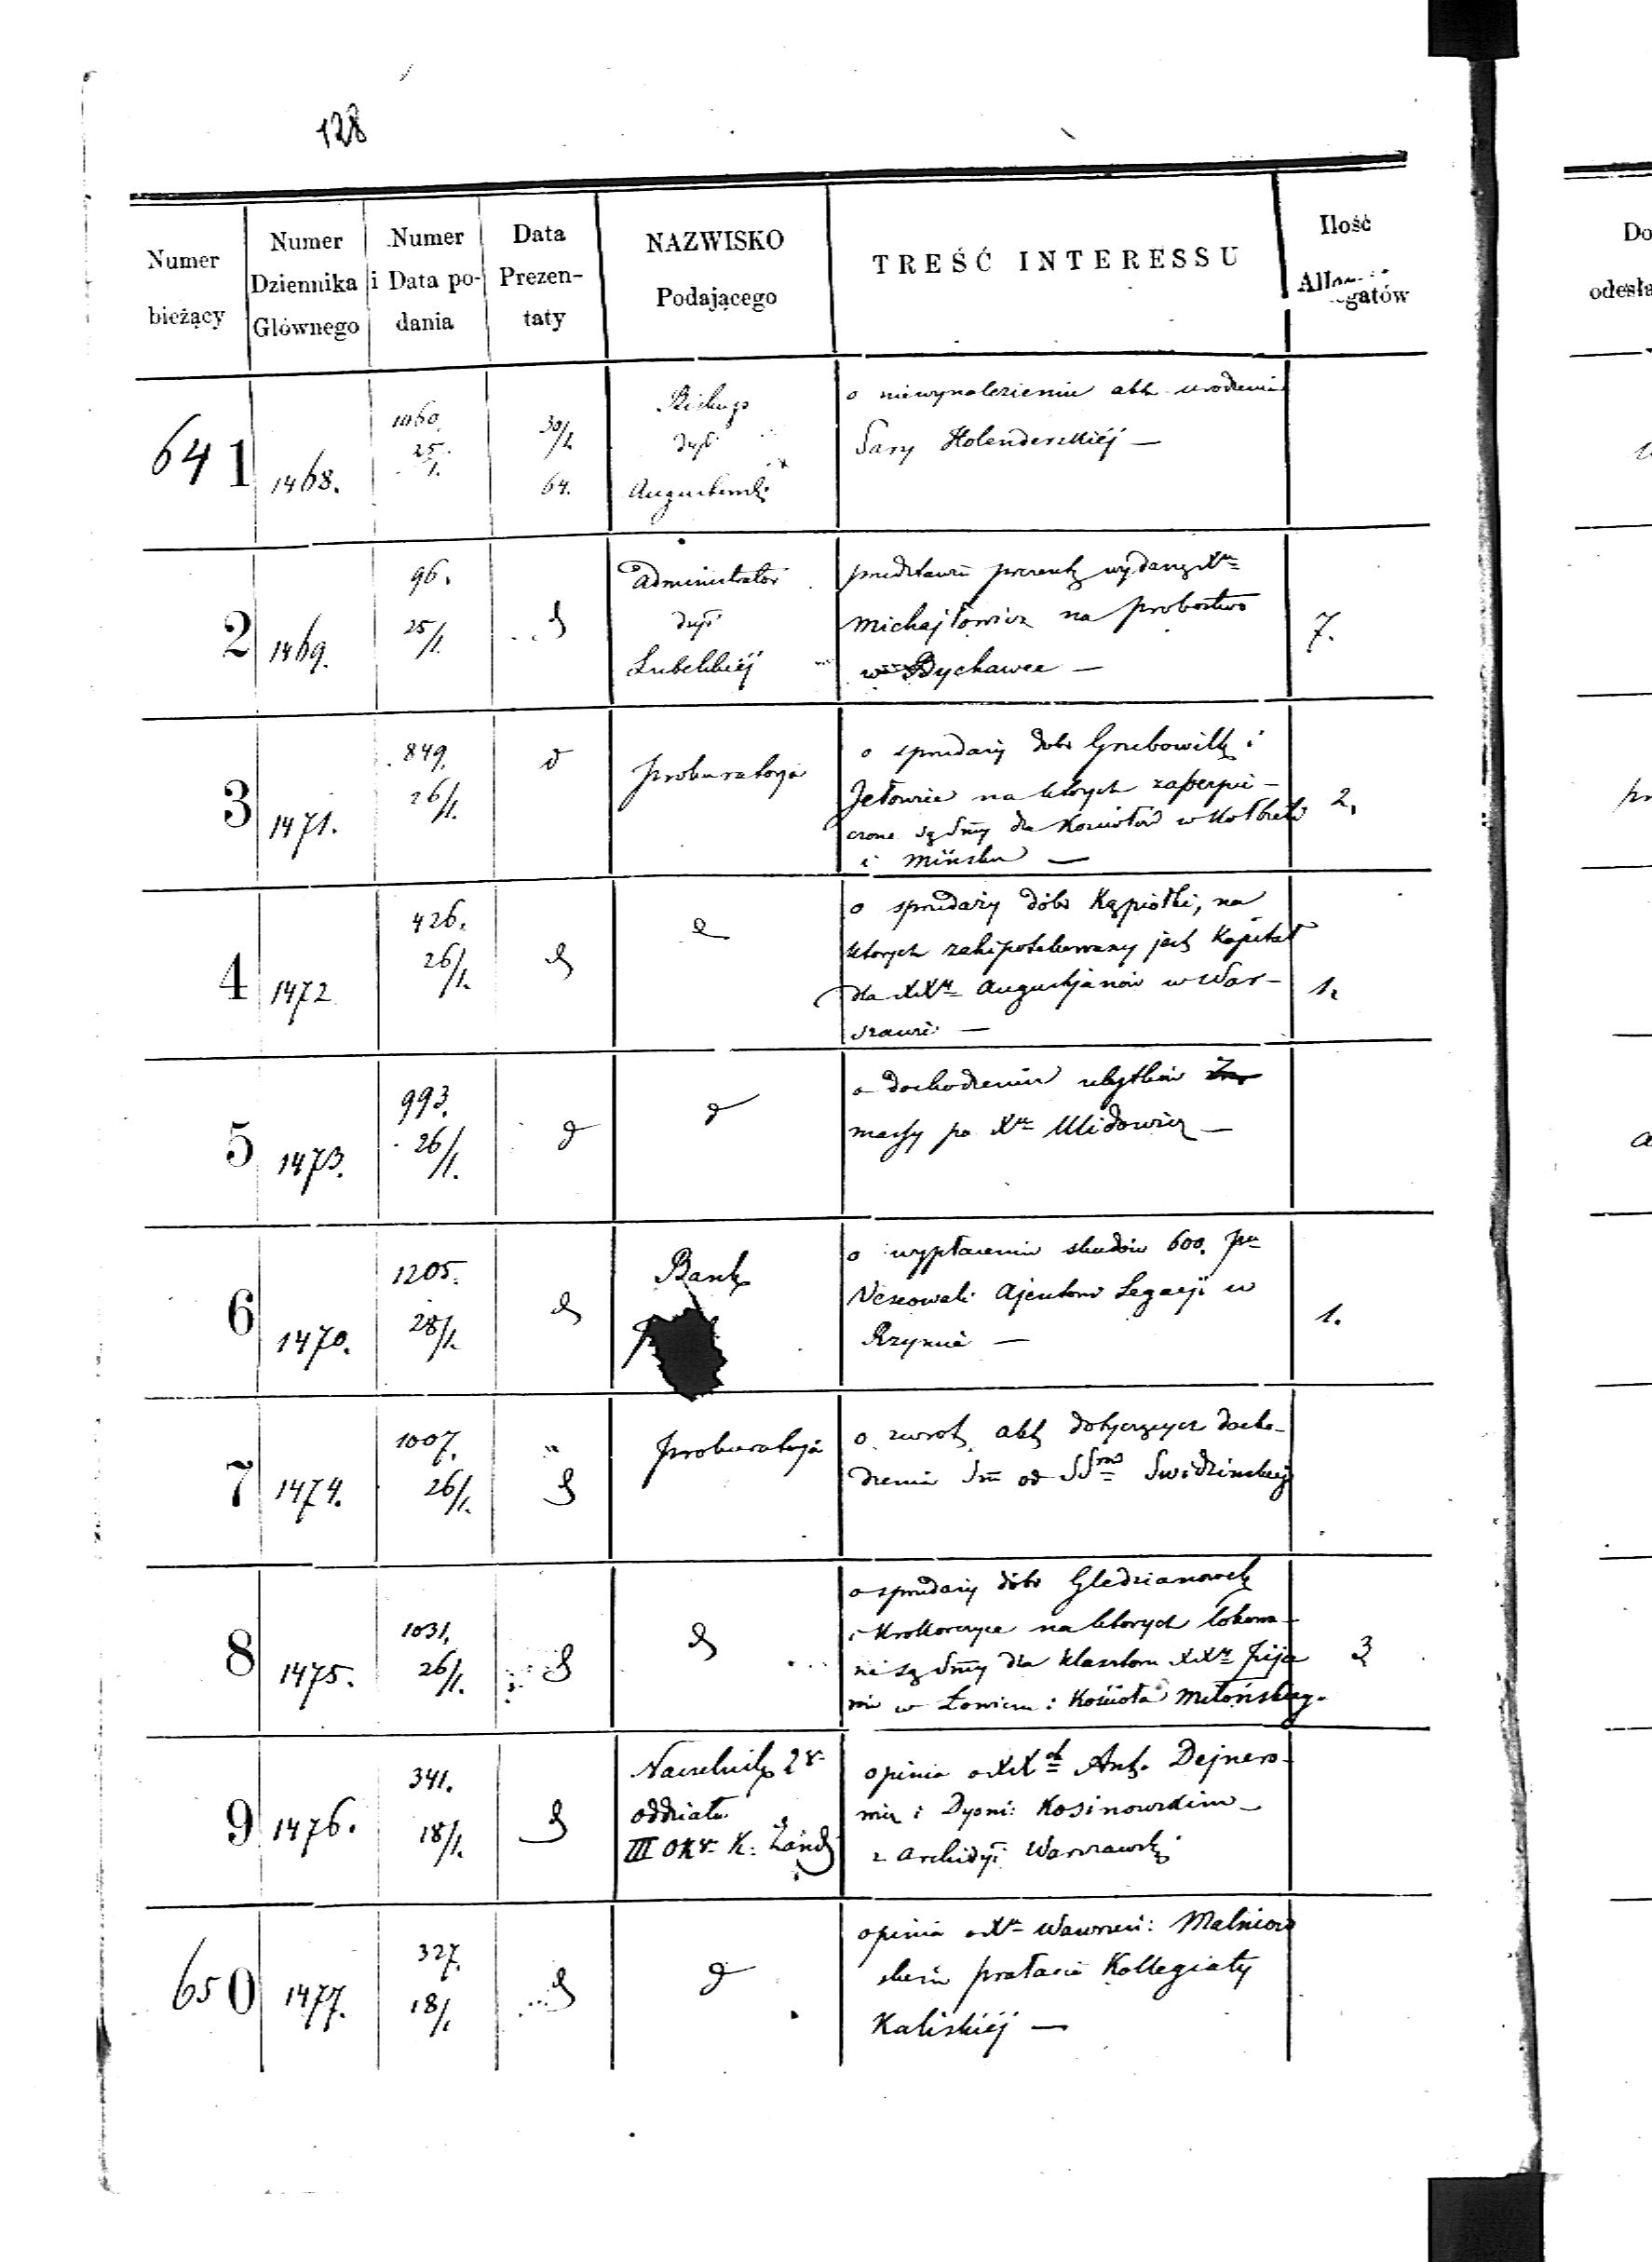 128
Numer bieżący
Numer Dziennika Głównego
Numer i Data podania
Data Prezentaty
NAZWISKO Podającego
TREŚĆ INTERESSU
Ilość Allegatów
641
1468.
1060.
25/1.
30/1 64.
Biskup
dyć
Augustowski
o niewynalezieniu akt urodzenia
Sary Holenderskiéj —
2
1469.
96.
25/1.
Administrator
dyć
Lubelskiéj
przedstawia prezentę wydaną Xu
Michajłowicz na probostwo
w Bychawce —
7.
3
1471.
849.
26/1.
d
Prokuratorja
o sprzedaży dóbr Grzebowilk i
Jełowiec na których zabezpie-
czone są Smy dla Kościołów w Kołbieli
i Mińsku —
2.
4
1472
426.
26/1.
o sprzedaży dóbr Kąpiołki, na
których zahipotekowany jest Kapitał
dla XXu Augustjanów w War-
szawie. —
1.
5
1473.
993.
26/1.
o dochodzeniu ubytków
massy po Xu Ulidowicz —
6
1470.
1205.
28/1.
Bank
o wypłaceniu skudów 600. pu
Ajentowi Legacji w
Rzymie —
1.
7
1474.
1007.
26/1.
Prokuratorja
o zwrot akt dotyczących docho-
dzenia Sm od SSrów Świdzinskiej
8
1475.
1031.
26/1.
o sprzedaży dóbr Gledzianowek
i Krokoczyce na których lokowa-
ne są Smy dla klasztoru XXu Pija
rów w Łowiczu i Kościoła Mełońskiego.
3
9
1476.
341.
18/1.
Naczelnik 2go
oddziału
III Okr. K: Żand
opinia o XXch Ant. Dejnero-
wicz i Dyoni: Kosinowskim —
z Archidyi Warszawskj
650
1477.
327.
18/1
opinia o Xu Wawrzeń: Malniow
skim prałacie Kollegiaty
Kaliskiéj —
Do
odesła